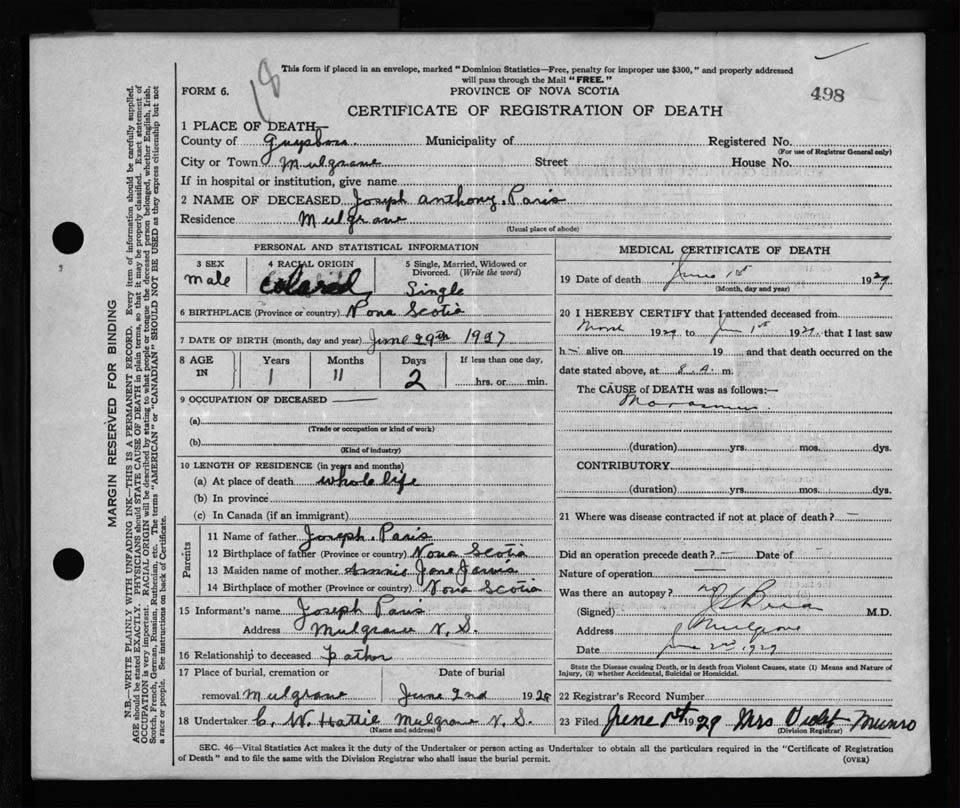 18
This form if placed in an envelope, marked "Dominion Statistics—Free, penalty for improper use $300," and properly addressed
will pass through the Mail "FREE."
498
FORM 6.
PROVINCE OF NOVA SCOTIA
CERTIFICATE OF REGISTRATION OF DEATH
1 PLACE OF DEATH—
County of Guysboro Municipality of Registered No.
(For use of Registrar General only)
City or Town Mulgrave Street House No.
If in hospital or institution, give name
2 NAME OF DECEASED Joseph Anthony Paris
Residence Mulgrave
(Usual place of abode)
PERSONAL AND STATISTICAL INFORMATION
3 SEX
male
4 RACIAL ORIGIN
Colored
5 Single, Married, Widowed or
Divorced. (Write the word)
Single
6 BIRTHPLACE (Province or country) Nova Scotia
7 DATE OF BIRTH (month, day and year) June 29th 1927
8 AGE IN
Years Months Days If less than one day,
1 11 2 hrs. or min.
9 OCCUPATION OF DECEASED
(a)
(Trade or occupation or kind of work)
(b)
(Kind of industry)
10 LENGTH OF RESIDENCE (in years and months)
(a) At place of death whole life
(b) In province
(c) In Canada (if an immigrant)
Parents
11 Name of father Joseph Paris
12 Birthplace of father (Province or country) Nova Scotia
13 Maiden name of mother Annie Jane Jarvis
14 Birthplace of mother (Province or country) Nova Scotia
15 Informant's name Joseph Paris
Address Mulgrave N. S.
16 Relationship to deceased Father
17 Place of burial, cremation or Date of burial
removal Mulgrave June 2nd 1929
18 Undertaker C. W. Hattie Mulgrave N. S.
(Name and address)
MEDICAL CERTIFICATE OF DEATH
19 Date of death June 1st 1929
(Month, day and year)
20 I HEREBY CERTIFY that I attended deceased from
1929 to June 1st 1929 that I last saw
h alive on 19 and that death occurred on the
date stated above, at 8 A. m.
The CAUSE of DEATH was as follows:—
Marasmus
(duration) yrs. mos. dys.
CONTRIBUTORY
(duration) yrs. mos. dys.
21 Where was disease contracted if not at place of death? —
Did an operation precede death? — Date of
Nature of operation —
Was there an autopsy? no
(Signed) M.D.
Address Mulgrave
Date June 2nd 1929
State the Disease causing Death, or in death from Violent Causes, state (1) Means and Nature of
Injury, (2) whether Accidental, Suicidal or Homicidal.
22 Registrar's Record Number
23 Filed June 1st 1929 Mrs Violet Munro
(Division Registrar)
SEC. 46—Vital Statistics Act makes it the duty of the Undertaker or person acting as Undertaker to obtain all the particulars required in the "Certificate of Registration
of Death" and to file the same with the Division Registrar who shall issue the burial permit.
(OVER)
MARGIN RESERVED FOR BINDING
N.B.—WRITE PLAINLY WITH UNFADING INK—THIS IS A PERMANENT RECORD. Every item of information should be carefully supplied.
AGE should be stated EXACTLY. PHYSICIANS should STATE CAUSE OF DEATH in plain terms, so that it may be properly classified. Exact statement of
OCCUPATION is very important. RACIAL ORIGIN will be described by stating to what people or tongue the deceased person belonged, whether English, Irish,
Scotch, French, German, Russian, Ruthenian, etc. The terms "AMERICAN" or "CANADIAN" SHOULD NOT BE USED as they express citizenship but not
a race or people. See instructions on back of Certificate.